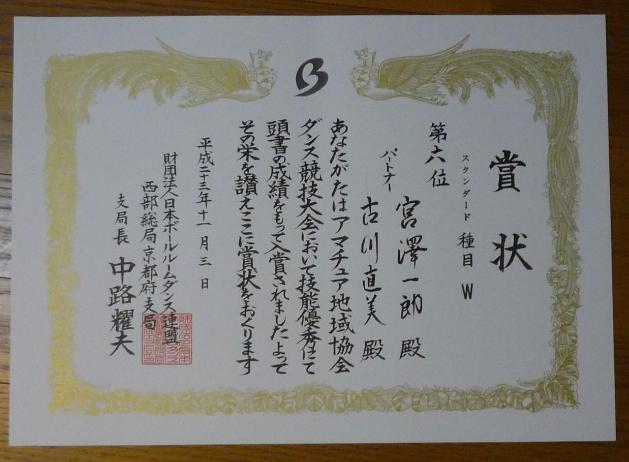 賞状
スタンダード 種目 W
第六位
宮澤一郎 殿
パートナー 古川直美 殿
あなたがたはアマチュア地域協会
ダンス競技大会において技能優秀にて
頭書の成績をもって入賞されましたよって
その栄を讃えここに賞状をおくります
平成二十三年十一月三日
財団法人日本ボールルームダンス連盟
西部総局京都府支局
支局長 中路耀夫